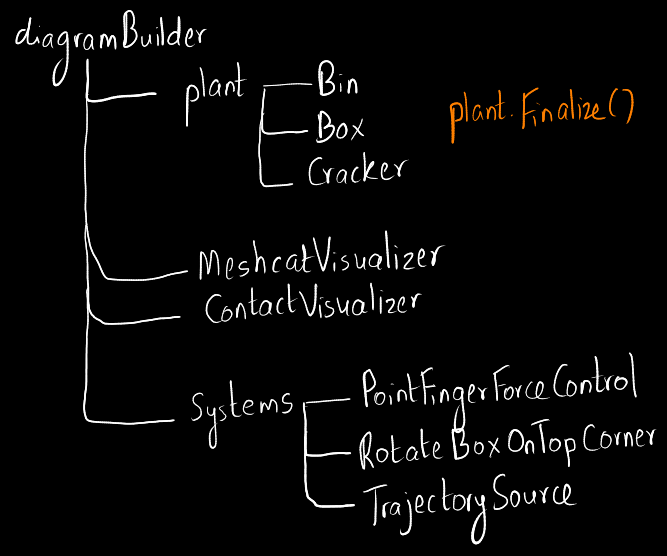 diagramBuilder
plant
Bin
Box
Cracker
plant.Finalize()
MeshcatVisualizer
ContactVisualizer
Systems
PointFingerForceControl
RotateBoxOnTopCorner
TrajectorySource